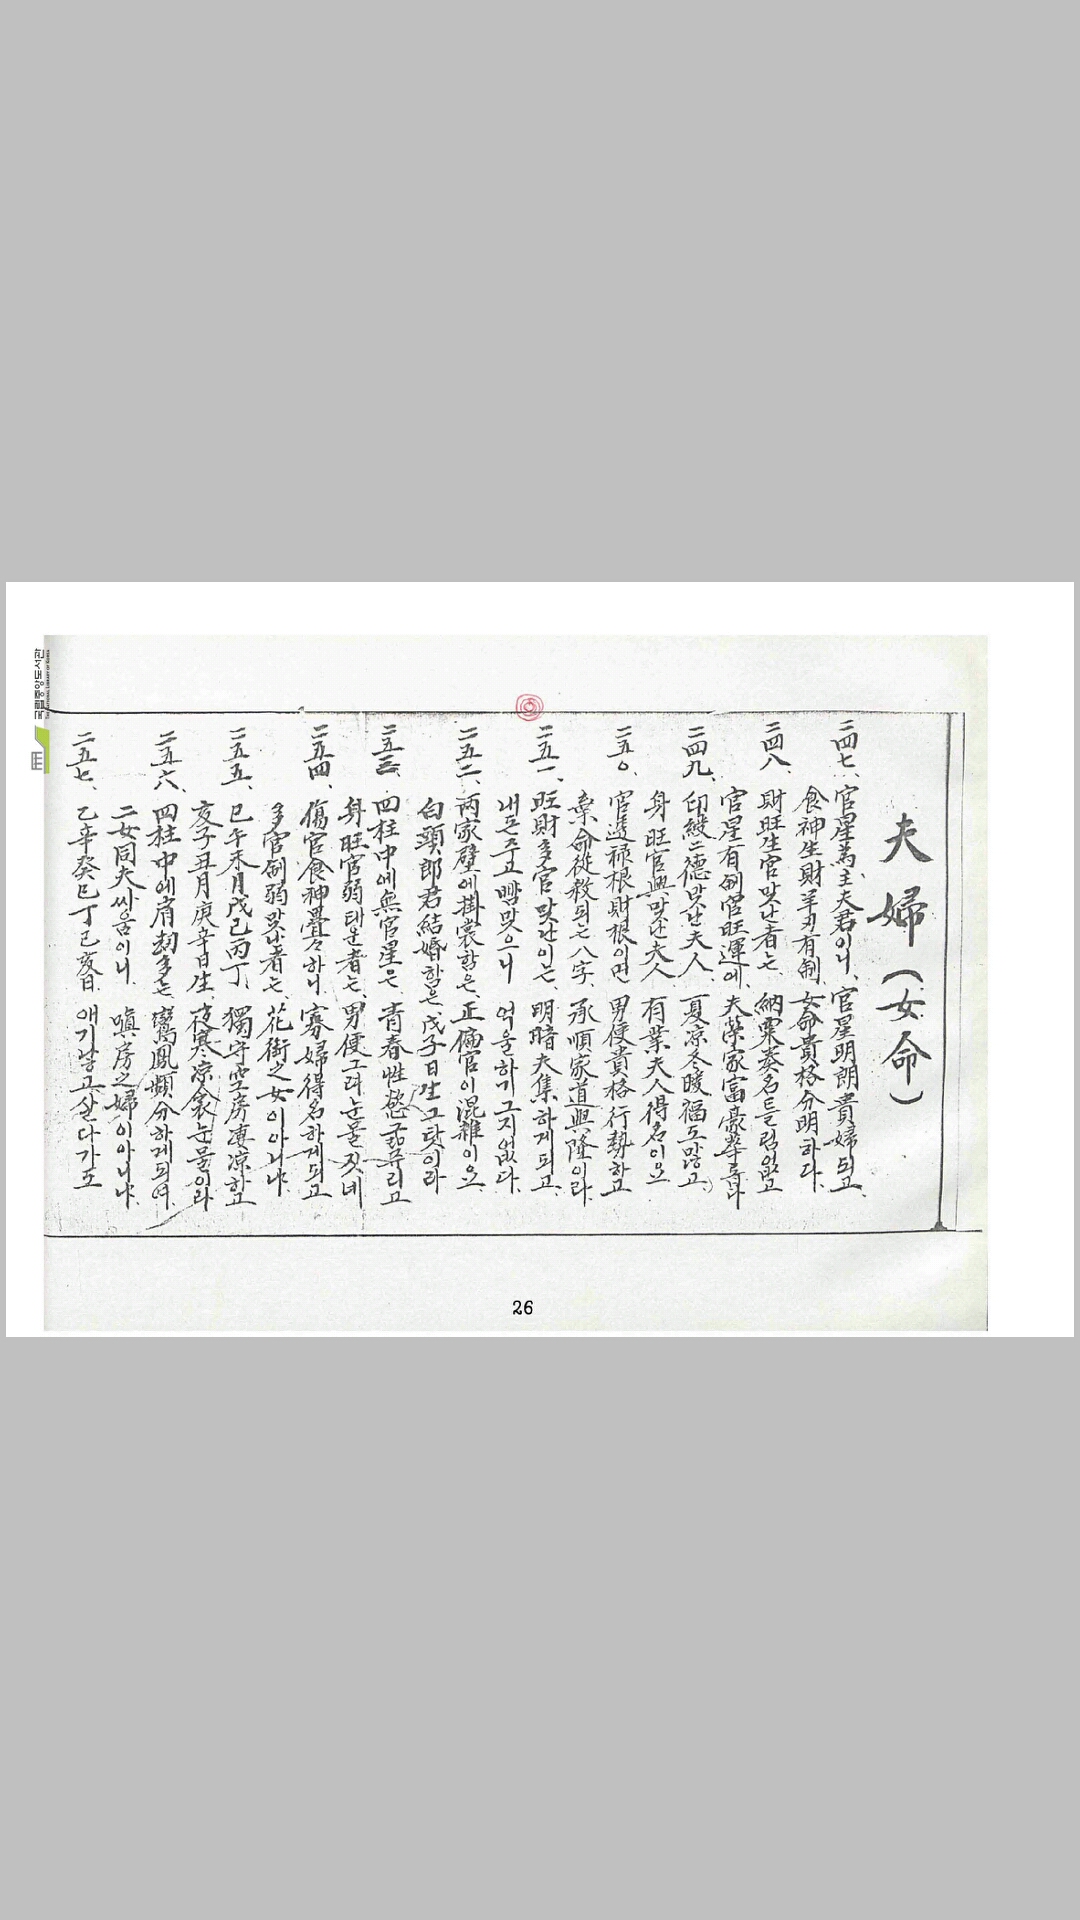 夫婦(女命)
二四七、官星為主夫君이니、官星明朗貴婦되고、
食神生財羊刃有制、女命貴格分明하다.
二四八、財旺生官맞난者는、納粟奏名틀림없고
官星有制官旺運에、夫榮家富豪華롭다
二四九、印綬二德맞난夫人、夏凉冬暖福도많고、
身旺官興맞난夫人、有業夫人得名이오
二五〇、官逢祿根財根이면 男便貴格行勢하고
棄命從殺되는八字、承順家道興隆이라.
二五一、旺財多官맞난이는、明暗夫集하게되고、
내돈주고빰맞으니 억울하기그지없다.
二五二、両家壁에掛裳함은、正偏官이混雜이오、
白頭郎君結婚함은、戊子日生그탓이라
二五三、四柱中에無官星은、青春性慾굶주리고
身旺官弱태운者는、男便그려눈물짓네
二五四、傷官食神疊々하니 寡婦得名하게되고
多官制弱맞난者는、花街之女이아니냐.
二五五、巳午未月戊己丙丁、獨守空房凄凉하고
亥子丑月庚辛日生、夜寒凉衾눈물이라
二五六、四柱中에肩劫多는 鸞鳳類分하게되여、
二女同夫싸움이니、嗔房之婦이아니냐.
二五七、乙辛癸巳丁己亥日、애기낳고살다가도
26